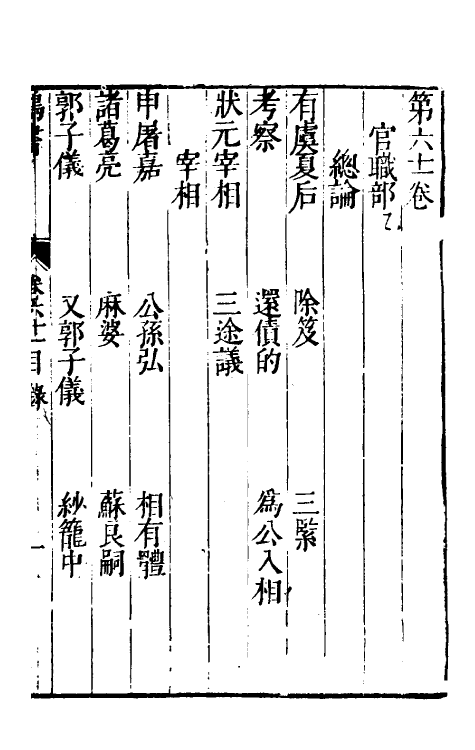 第六十一卷
官職部乙
總論
有虞夏后 除笈 三緊
考察 還債的 為公入相
狀元宰相 三途議
宰相
申屠嘉 公孫弘 相有體
諸葛亮 麻婆 蘇良嗣
郭子儀 又郭子儀 紗籠中
書 卷六十一目錄 一